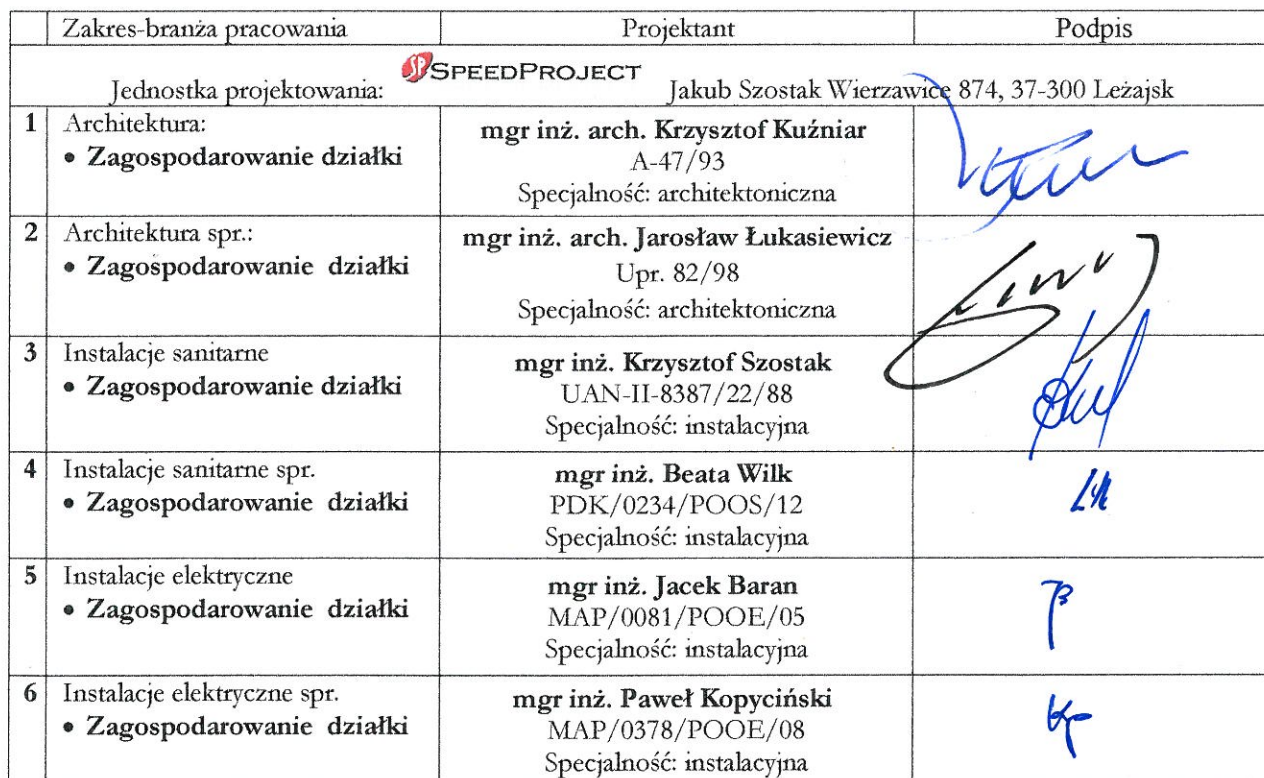 Zakres-branża pracowania Projektant Podpis
SP SPEEDPROJECT
Jednostka projektowania: Jakub Szostak Wierzawice 874, 37-300 Leżajsk
1 Architektura:
• Zagospodarowanie działki
mgr inż. arch. Krzysztof Kuźniar
A-47/93
Specjalność: architektoniczna
2 Architektura spr.:
• Zagospodarowanie działki
mgr inż. arch. Jarosław Łukasiewicz
Upr. 82/98
Specjalność: architektoniczna
3 Instalacje sanitarne
• Zagospodarowanie działki
mgr inż. Krzysztof Szostak
UAN-II-8387/22/88
Specjalność: instalacyjna
4 Instalacje sanitarne spr.
• Zagospodarowanie działki
mgr inż. Beata Wilk
PDK/0234/POOS/12
Specjalność: instalacyjna
5 Instalacje elektryczne
• Zagospodarowanie działki
mgr inż. Jacek Baran
MAP/0081/POOE/05
Specjalność: instalacyjna
6 Instalacje elektryczne spr.
• Zagospodarowanie działki
mgr inż. Paweł Kopyciński
MAP/0378/POOE/08
Specjalność: instalacyjna